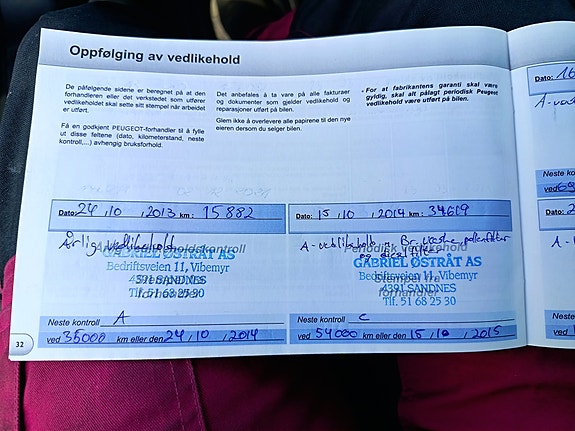 Oppfølging av vedlikehold
De påfølgende sidene er beregnet på at den
forhandleren eller det verkstedet som utfører
vedlikeholdet skal sette sitt stempel når arbeidet
er utført.
Få en godkjent PEUGEOT-forhandler til å fylle
ut disse feltene (dato, kilometerstand, neste
kontroll,...) avhengig bruksforhold.
Det anbefales å ta vare på alle fakturaer
og dokumenter som gjelder vedlikehold og
reparasjoner utført på bilen.
Glem ikke å overlevere alle papirene til den nye
eieren dersom du selger bilen.
- For at fabrikantens garanti skal være
gyldig, skal alt pålagt periodisk Peugeot
vedlikehold være utført på bilen.
Dato: 24 / 10 / 2013 km : 15 882
Årlig vedlikehold
GABRIEL ØSTRÅT AS
Bedriftsveien 11, Vibemyr
4391 SANDNES
Tlf. 51 68 25 30
Neste kontroll A
ved 35000 km eller den 24 / 10 / 2014
Dato: 15 / 10 / 2014 km : 34619
A-vedlikehold, Br. væske, pollenfilter
og dieselfilter
Periodisk vedlikehold
GABRIEL ØSTRÅT AS
Bedriftsveien 11, Vibemyr
4391 SANDNES
Stempel fra
forhandler
Tlf. 51 68 25 30
Neste kontroll C
ved 54000 km eller den 15 / 10 / 2015
32
Dato: 16
Neste kontroll
Dato:
Neste kontroll
ved